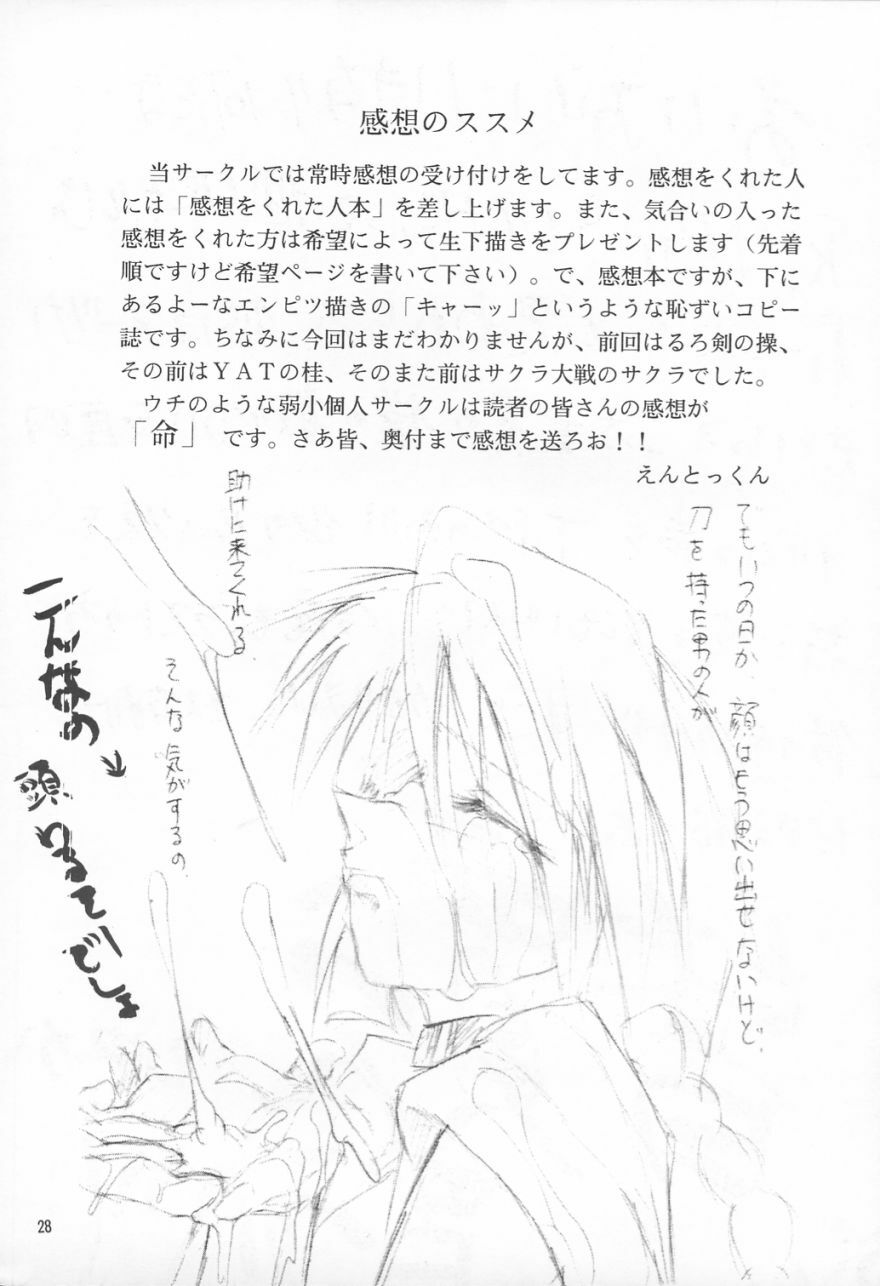 感想のススメ
当サークルでは常時感想の受け付けをしてます。感想をくれた人
には「感想をくれた人本」を差し上げます。また、気合いの入った
感想をくれた方は希望によって生下描きをプレゼントします（先着
順ですけど希望ページを書いて下さい）。で、感想本ですが、下に
あるよーなエンピツ描きの「キャーッ」というような恥ずいコピー
誌です。ちなみに今回はまだわかりませんが、前回はるろ剣の操、
その前はＹＡＴの桂、そのまた前はサクラ大戦のサクラでした。
ウチのような弱小個人サークルは読者の皆さんの感想が
「命」です。さあ皆、奥付まで感想を送ろお！！
えんとっくん
でもいつの日か、顔はもう思い出せないけど、
刀を持った男の人が
助けに来てくれる、
そんな気がするの、
こんなの→
28